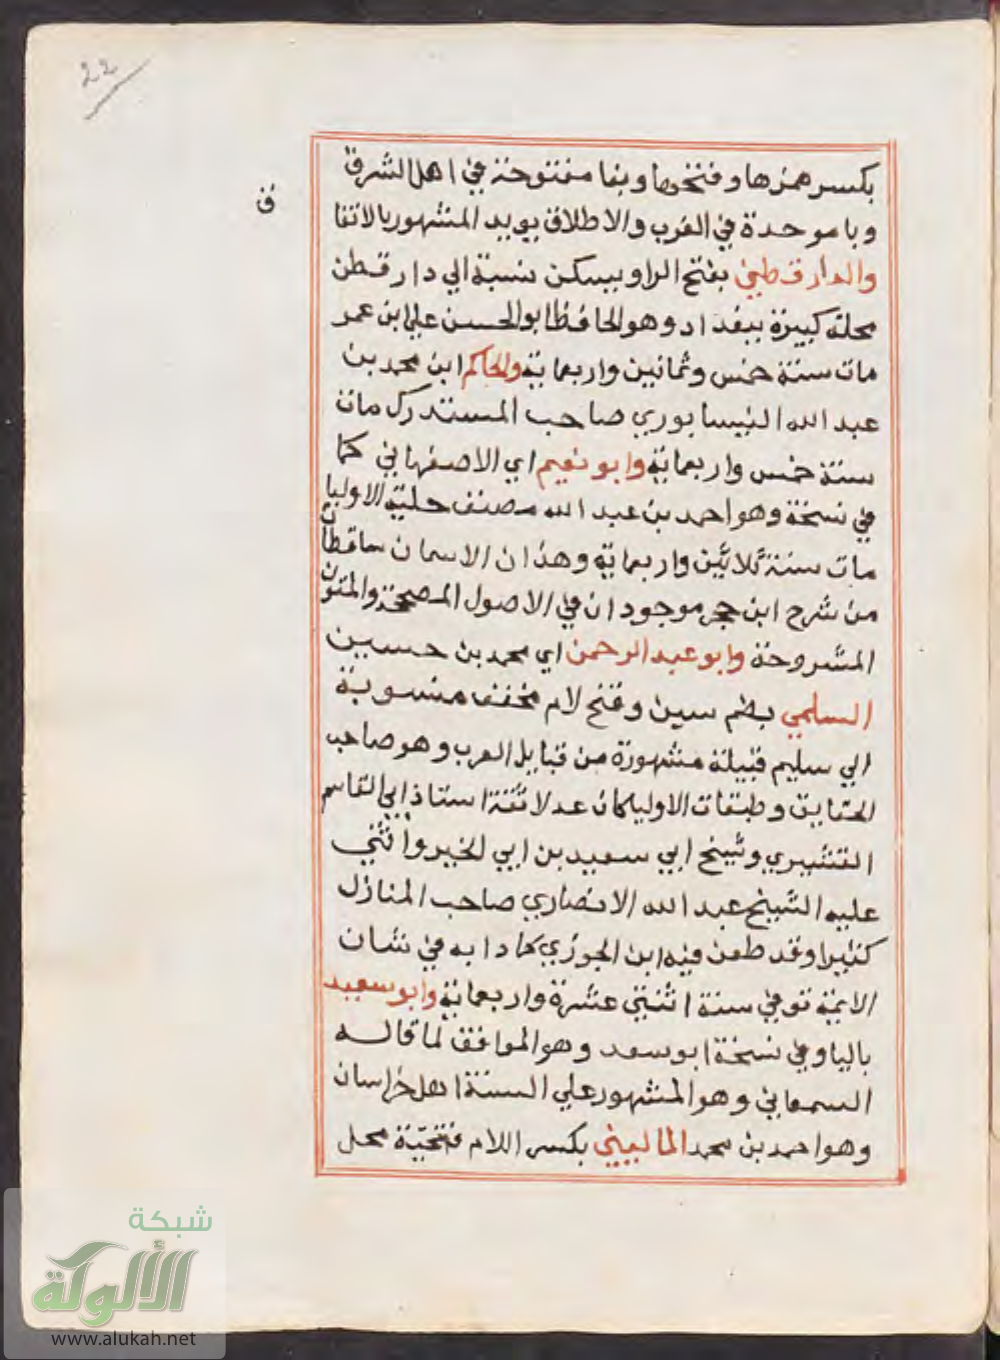 22
بكسر همزها وفتحها وبفا مفتوحة في اهل الشرق
ق
وبا موحدة في الغرب والاطلاق يويد المشهور بالاتفا
والدارقطني بفتح الرا ويسكن نسبة الي دار قطن
محلة كبيرة ببغداد وهو الحافظ ابو الحسن علي ابن عمر
مات سنة خمس وثمانين واربعماية والحاكم ابن محمد بن
عبد الله النيسابوري صاحب المستدرك مات
سنة خمس واربعماية وابو نعيم اي الاصفهاني كما
في نسخة وهو احمد بن عبد الله مصنف حلية الاوليا
مات سنة ثلاثين واربعماية وهذان الاسمان ساقطان
من شرح ابن حجر موجودان في الاصول المصححة والمتون
المشروحة وابو عبد الرحمن اي محمد بن حسين
السلمي بضم سين وفتح لام مخفف منسوبة
الي سليم قبيلة مشهورة من قبايل العرب وهو صاحب
الحقايق وطبقات الاوليا كان عدلا ثقة استاذ ابي القاسم
القشيري وشيخ ابي سعيد بن ابي الخير واثني
عليه الشيخ عبد الله الانصاري صاحب المنازل
كثيرا وقد طعن فيه ابن الجوزي كما دابه في شان
الايمة توفي سنة اثنتي عشرة واربعماية وابو سعيد
باليا وفي نسخة ابو سعد وهو الموافق لما قاله
السمعاني وهو المشهور علي السنة اهل خراسان
وهو احمد بن محمد الماليني بكسر اللام فتحتية محل
شبكة
الألوكة
www.alukah.net